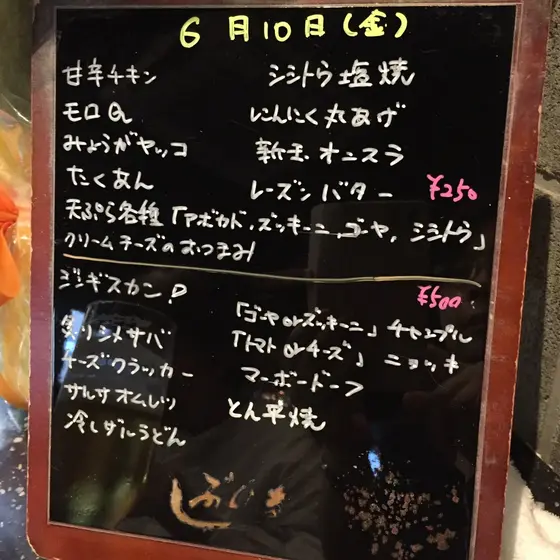 6月10日(金)
甘辛チキン
シシトウ塩焼
モロQ
にんにく丸あげ
みょうがヤッコ
新玉オニスラ
たくあん
レーズンバター ¥250
天ぷら各種「アボカド、ズッキーニ、ゴーヤ、シシトウ」
クリームチーズのおつまみ
ジンギスカン!
¥500
「ゴーヤorズッキーニ」チャンプル
炙りシメサバ
「トマトorチーズ」ニョッキ
チーズクラッカー
マーボードーフ
サルサオムレツ
とん平焼
冷しザルうどん